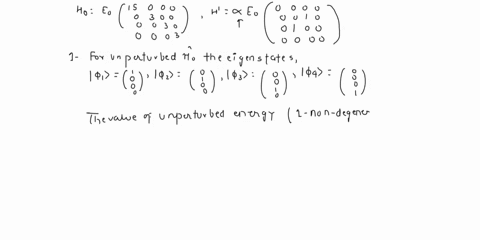 H₀ : E₀ (15 0 0 0 / 0 3 0 0 / 0 0 3 0 / 0 0 0 3) , H' = ∝ E₀ (0 0 0 0 / 0 0 1 0 / 0 1 0 0 / 0 0 0 0)
↑
1- For unperturbed Ĥ₀ the eigenstates,
|ϕ₁⟩ = (1 0 0 0), |ϕ₂⟩ : (0 1 0 0), |ϕ₃⟩ : (0 0 1 0), |ϕ₄⟩ : (0 0 0 1)
The value of unperturbed energy (1-non-degener